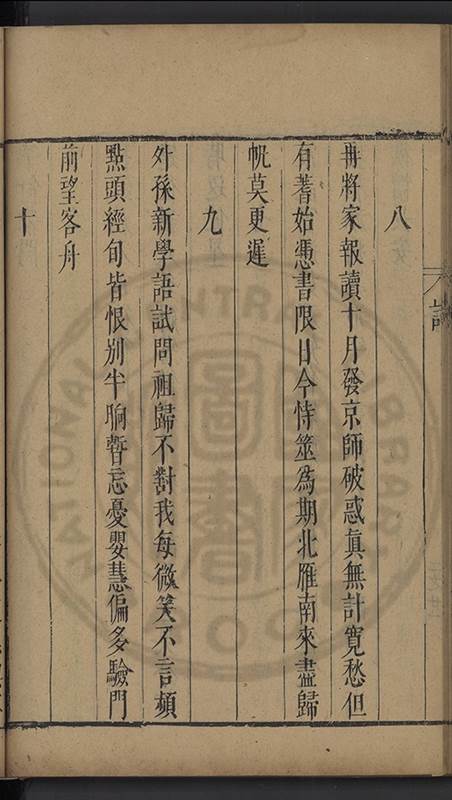 八
冉將家報讀十月發京師破惑眞無計寬愁但
有蓍始憑書限日今恃筮爲期北雁南來盡歸
帆莫更遲
九
外孫新學語試問祖歸不對我每微笑不言頻
點頭經旬皆恨别半晌暫忘憂嬰慧偏多驗門
前望客舟
十